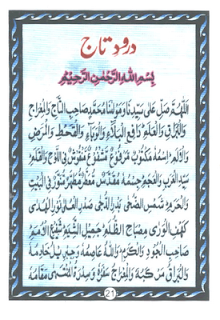 درود تاج
بِسْمِ اللهِ الرَّحْمٰنِ الرَّحِيْمِ
اَللّٰهُمَّ صَلِّ عَلٰى سَيِّدِنَا وَمَوْلٰنَا مُحَمَّدٍ صَاحِبِ التَّاجِ وَالْمِعْرَاجِ
وَالْبُرَاقِ وَالْعَلَمِ دَافِعِ الْبَلَاءِ وَالْوَبَاءِ وَالْقَحْطِ وَالْمَرَضِ
وَالْاَلَمِ اِسْمُهٗ مَكْتُوْبٌ مَّرْفُوْعٌ مَّشْفُوْعٌ مَّنْقُوْشٌ فِى اللَّوْحِ وَالْقَلَمِ
سَيِّدِ الْعَرَبِ وَالْعَجَمِ جِسْمُهٗ مُقَدَّسٌ مُّعَطَّرٌ مُّطَهَّرٌ مُّنَوَّرٌ فِى الْبَيْتِ
وَالْحَرَمِ شَمْسِ الضُّحٰى بَدْرِ الدُّجٰى صَدْرِ الْعُلٰى نُوْرِ الْهُدٰى
كَهْفِ الْوَرٰى مِصْبَاحِ الظُّلَمِ جَمِيْلِ الشِّيَمِ شَفِيْعِ الْاُمَمِ
صَاحِبِ الْجُوْدِ وَالْكَرَمِ وَاللهُ عَاصِمُهٗ وَجِبْرِيْلُ خَادِمُهٗ
وَالْبُرَاقُ مَرْكَبُهٗ وَالْمِعْرَاجُ سَفَرُهٗ وَسِدْرَةُ الْمُنْتَهٰى مَقَامُهٗ
21